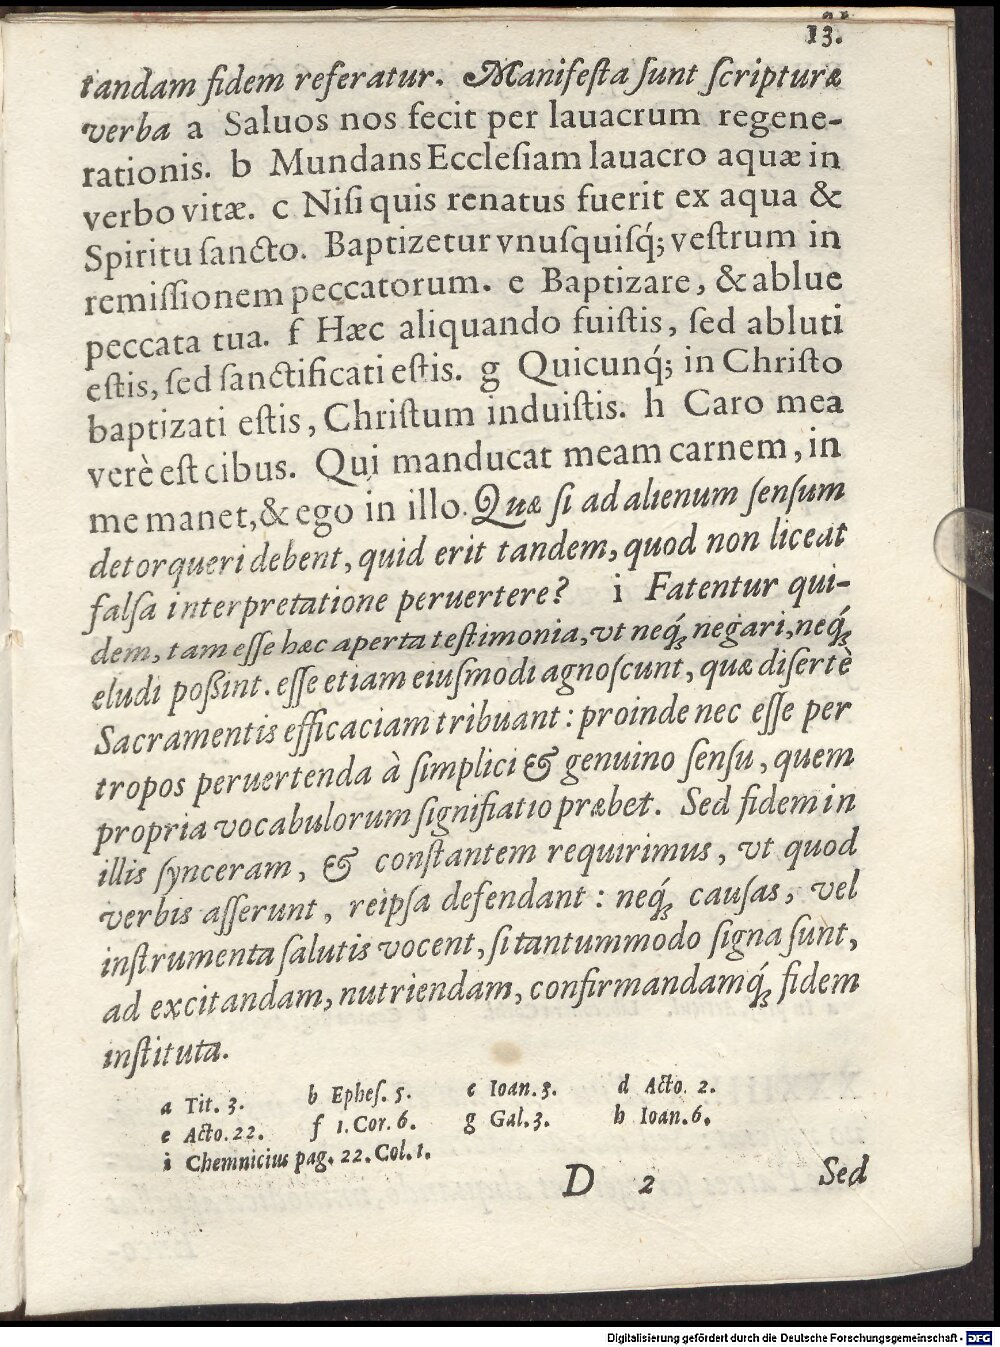 13.
tandam fidem referatur. Manifeſta ſunt ſcripturæ
verba a Saluos nos fecit per lauacrum regene-
rationis. b Mundans Eccleſiam lauacro aquæ in
verbo vitæ. c Niſi quis renatus fuerit ex aqua &
Spiritu ſancto. Baptizetur vnuſquiſq́; veſtrum in
remiſſionem peccatorum. e Baptizare, & ablue
peccata tua. f Hæc aliquando fuiſtis, ſed abluti
eſtis, ſed ſanctificati eſtis. g Quicunq́; in Chriſto
baptizati eſtis, Chriſtum induiſtis. h Caro mea
verè eſt cibus. Qui manducat meam carnem, in
me manet, & ego in illo. Quæ ſi ad alienum ſenſum
detorqueri debent, quid erit tandem, quod non liceat
falſa interpretatione peruertere? i Fatentur qui-
dem, tam eſſe hæc aperta teſtimonia, vt neq́; negari, neq́;
eludi poßint. eſſe etiam eiuſmodi agnoſcunt, quæ diſertè
Sacramentis efficaciam tribuant: proinde nec eſſe per
tropos peruertenda à ſimplici & genuino ſenſu, quem
propria vocabulorum ſignifiatio præbet. Sed fidem in
illis ſynceram, & conſtantem requirimus, vt quod
verbis aſſerunt, reipſa defendant: neq́; cauſas, vel
inſtrumenta ſalutis vocent, ſi tantummodo ſigna ſunt,
ad excitandam, nutriendam, confirmandamq́; fidem
inſtituta.
a Tit. 3. b Epheſ. 5. c Ioan. 3. d Acto. 2.
e Acto. 22. f 1. Cor. 6. g Gal. 3. h Ioan. 6.
i Chemnicius pag. 22. Col. 1.
D 2 Sed
Digitalisierung gefördert durch die Deutsche Forschungsgemeinschaft - DFG